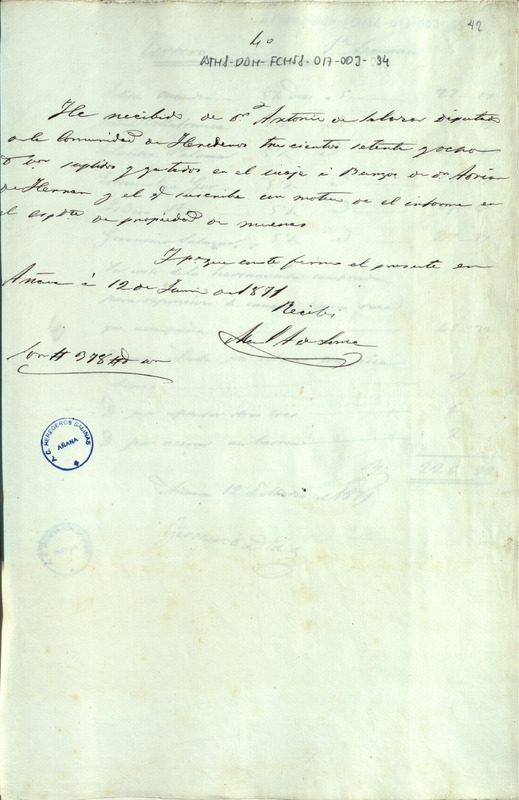 42
4º
ATHS-DAH-FCHSS-017-003-34
He recibido de Dn Antonio de Salazar Diputado
de la Comunidad de Herederos trescientos setenta y ocho
suplidos y gastados en el viage á Burgos de Dn
de Herran y el q suscribe con motivo de el informe en
el espte de propiedad de mueras
Y pa que conste firmo el presente en
Añana á 12 de Junio de 1871
Recibi
Son # 378 #
C. HEREDEROS SALINAS
AÑANA